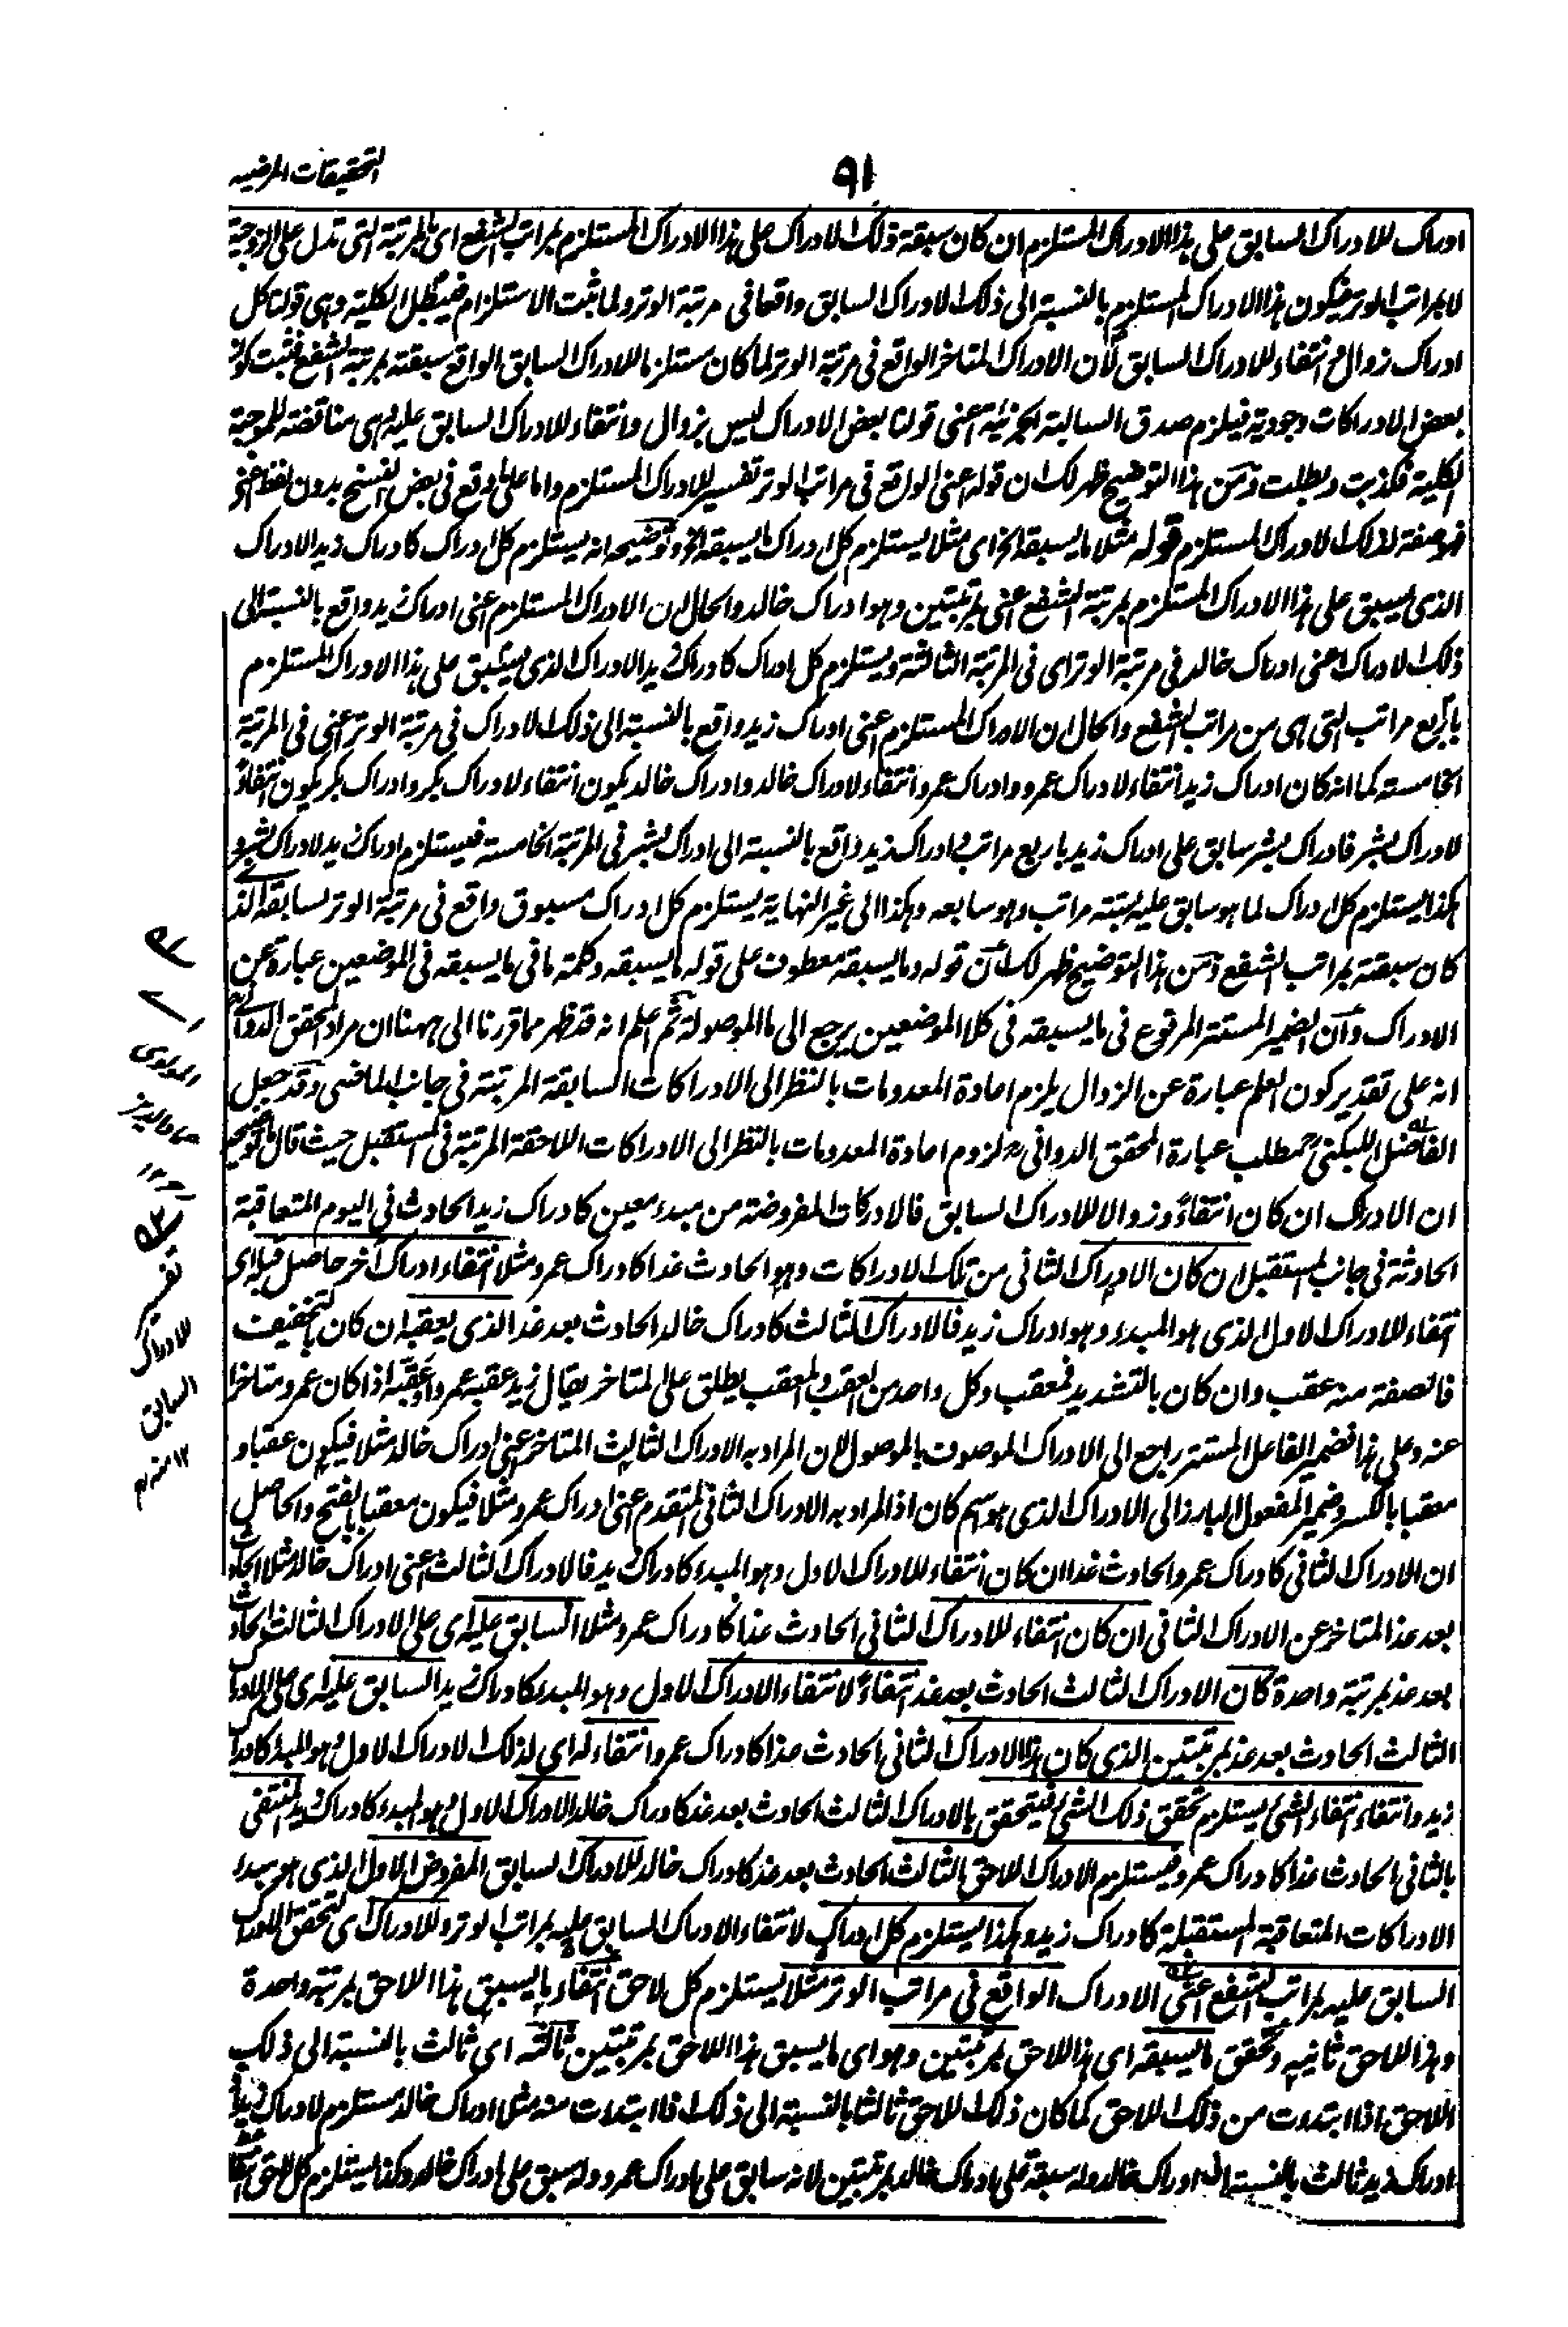 التحقيقات المرضيه
٩١
ادراك للادراك السابق على هذا الادراك المستلزم ان كان سبقة ذلك الادراك على هذا الادراك المستلزم بمراتب الشفع اى بالمرتبة التى تدل على الزوجية
لا بمراتب الوتر فيكون هذا الادراك المستلزم بالنسبة الى ذلك الادراك السابق واقعا فى مرتبة الوتر ولما ثبت الاستلزام فيبطل الكلية وهى قولنا كل
ادراك زوال و انتفاء للادراك السابق لأن الادراك المتاخر الواقع فى مرتبة الوتر لما كان مستلزما للادراك السابق الواقع سبقته بمرتبة الشفع فثبت كون
بعض الادراكات وجودية فيلزم صدق السالبة الجزئية اعنى قولنا بعض الادراك ليس بزوال وانتفاء للادراك السابق عليه وهى مناقضة للموجبة
الكلية فكذبت وبطلت ومن هذا التوضيح ظهر لك ان قوله اعنى الواقع فى مراتب الوتر تفسير للادراك المستلزم واما على ما وقع فى بعض النسخ بدون لفظ اعنى
فهو صفة لذلك الادراك المستلزم قوله مثلا ما يسبقه الخ اى مثلا يستلزم كل ادراك ما يسبقه الخ وتوضيحه انه يستلزم كل ادراك كادراك زيد الادراك
الذى يسبق على هذا الادراك المستلزم بمرتبة الشفع اعنى بمرتبتين وهو ادراك خالد والحال ان الادراك المستلزم اعنى ادراك زيد واقع بالنسبة الى
ذلك الادراك اعنى ادراك خالد فى مرتبة الوتر اى فى المرتبة الثالثة ويستلزم كل ادراك كادراك زيد الادراك الذى يسبق على هذا الادراك المستلزم
باربع مراتب التى هى من مراتب الشفع والحال ان الادراك المستلزم اعنى ادراك زيد واقع بالنسبة الى ذلك الادراك فى مرتبة الوتر اعنى فى المرتبة
الخامسة كما انه كان ادراك زيد انتفاء لادراك عمرو وادراك عمرو انتفاء لادراك خالد وادراك خالد يكون انتفاء لادراك بكر وادراك بكر يكون انتفاءً
لادراك بشر فادراك بشر سابق على ادراك زيد باربع مراتب وادراك زيد واقع بالنسبة الى ادراك بشر فى المرتبة الخامسة فيستلزم ادراك زيد لادراك بشر و
هكذا يستلزم كل ادراك لما هو سابق عليه بستة مراتب وهو سابعه وهكذا الى غير النهاية يستلزم كل ادراك مسبوق واقع فى مرتبة الوتر لسابقه الذى
كان سبقته بمراتب الشفع ومن هذا التوضيح ظهر لك أن قوله وما يسبقه معطوف على قوله ما يسبقه وكلمة ما فى ما يسبقه فى الموضعين عبارة عن
الادراك وأن الضمير المستتر المرفوع فى ما يسبقه فى كلا الموضعين يرجع الى ما الموصولة ثم اعلم انه قد ظهر مما قررنا الى ههنا ان مراد المحقق الدوانى
انه على تقدير كون العلم عبارة عن الزوال يلزم اعادة المعدومات بالنظر الى الادراكات السابقة المرتبة فى جانب الماضى وقد جعل
الفاضل اللبكنى مطلب عبارة المحقق الدوانى لزوم اعادة المعدومات بالنظر الى الادراكات اللاحقة المرتبة فى المستقبل حيث قال ما توضيحه
ان الادراك ان كان انتفاءً وزوالا للادراك السابق فالادركات المفروضة من مبدء معين كادراك زيد الحادث فى اليوم المتعاقبة
الحادثة فى جانب المستقبل ان كان الادراك الثانى من تلك الادراكات وهو الحادث غدا كادراك عمرو مثلا انتفاء ادراك آخر حاصل قبله اى
انتفاء للادراك الاول الذى هو المبدء وهو ادراك زيد فالادراك الثالث كادراك خالد الحادث بعد غد الذى يعقبه ان كان بالتخفيف
فالصفة منه عقب وان كان بالتشديد فمعقب وكل واحد من العقب والمعقب يطلق على المتاخر يقال زيد عقبه عمرو او عقّبه اذا كان عمرو متاخرا
عنه وعلى هذا فضمير الفاعل المستتر راجع الى الادراك الموصوف بالموصول لان المراد به الادراك الثالث المتاخر اعنى ادراك خالد مثلا فيكون عقبا و
معقبا بالكسر وضمير المفعول البارز الى الادراك الذى هو اسم كان اذ المراد به الادراك الثانى المتقدم اعنى ادراك عمرو مثلا فيكون معقبا بالفتح والحاصل
ان الادراك الثانى كادراك عمرو الحادث غدا ان كان انتفاء للادراك الاول وهو المبدء كادراك زيد فالادراك الثالث اعنى ادراك خالد مثلا الحادث
بعد غد المتاخر عن الادراك الثانى ان كان انتفاء للادراك الثانى الحادث غدا كادراك عمرو مثلا السابق عليه اى على الادراك الثالث الحادث
بعد غد بمرتبة واحدة كان الادراك الثالث الحادث بعد غد انتفاءً لانتفاء الادراك الاول وهو المبدء كادراك زيد السابق عليه اى على الادراك
الثالث الحادث بعد غد بمرتبتين الذى كان هذا الادراك الثانى الحادث غدا كادراك عمرو انتفاء له اى لذلك الادراك الاول وهو المبدء كادراك
زيد وانتفاء انتفاء الشئ يستلزم تحقق ذلك الشئ فيتحقق بالادراك الثالث الحادث بعد غد كادراك خالد الادراك الاول وهو المبدء كادراك زيد المنتفى
بالثانى الحادث غدا كادراك عمرو فيستلزم الادراك اللاحق الثالث الحادث بعد غد كادراك خالد للادراك السابق المفروض الاول الذى هو مبدء
الادراكات المتعاقبة المستقبلة كادراك زيد وهكذا يستلزم كل ادراك لانتفاء الادراك السابق عليه بمراتب الوتر وللادراك اى لتحقق الادراك
السابق عليه بمراتب الشفع اعنى الادراك الواقع فى مراتب الوتر مثلا يستلزم كل لاحق انتفاء ما يسبق هذا اللاحق بمرتبة واحدة
وهذا اللاحق ثانيه وتحقق ما يسبقه اى هذا اللاحق بمرتبتين وهو اى ما يسبق هذا اللاحق بمرتبتين ثالثه اى ثالث بالنسبة الى ذلك
اللاحق اذا ابتدءت من ذلك اللاحق كما كان ذلك اللاحق ثالثا بالنسبة الى ذلك اذا ابتدءت منه مثلا ادراك خالد مستلزم لادراك زيد و
ادراك زيد ثالث بالنسبة الى ادراك خالد وله سبقة على ادراك خالد بمرتبتين لانه سابق على ادراك عمرو وله سبق على ادراك خالد وهكذا يستلزم كل لاحق
تفسير
للادراك
السابق
١٢ منه